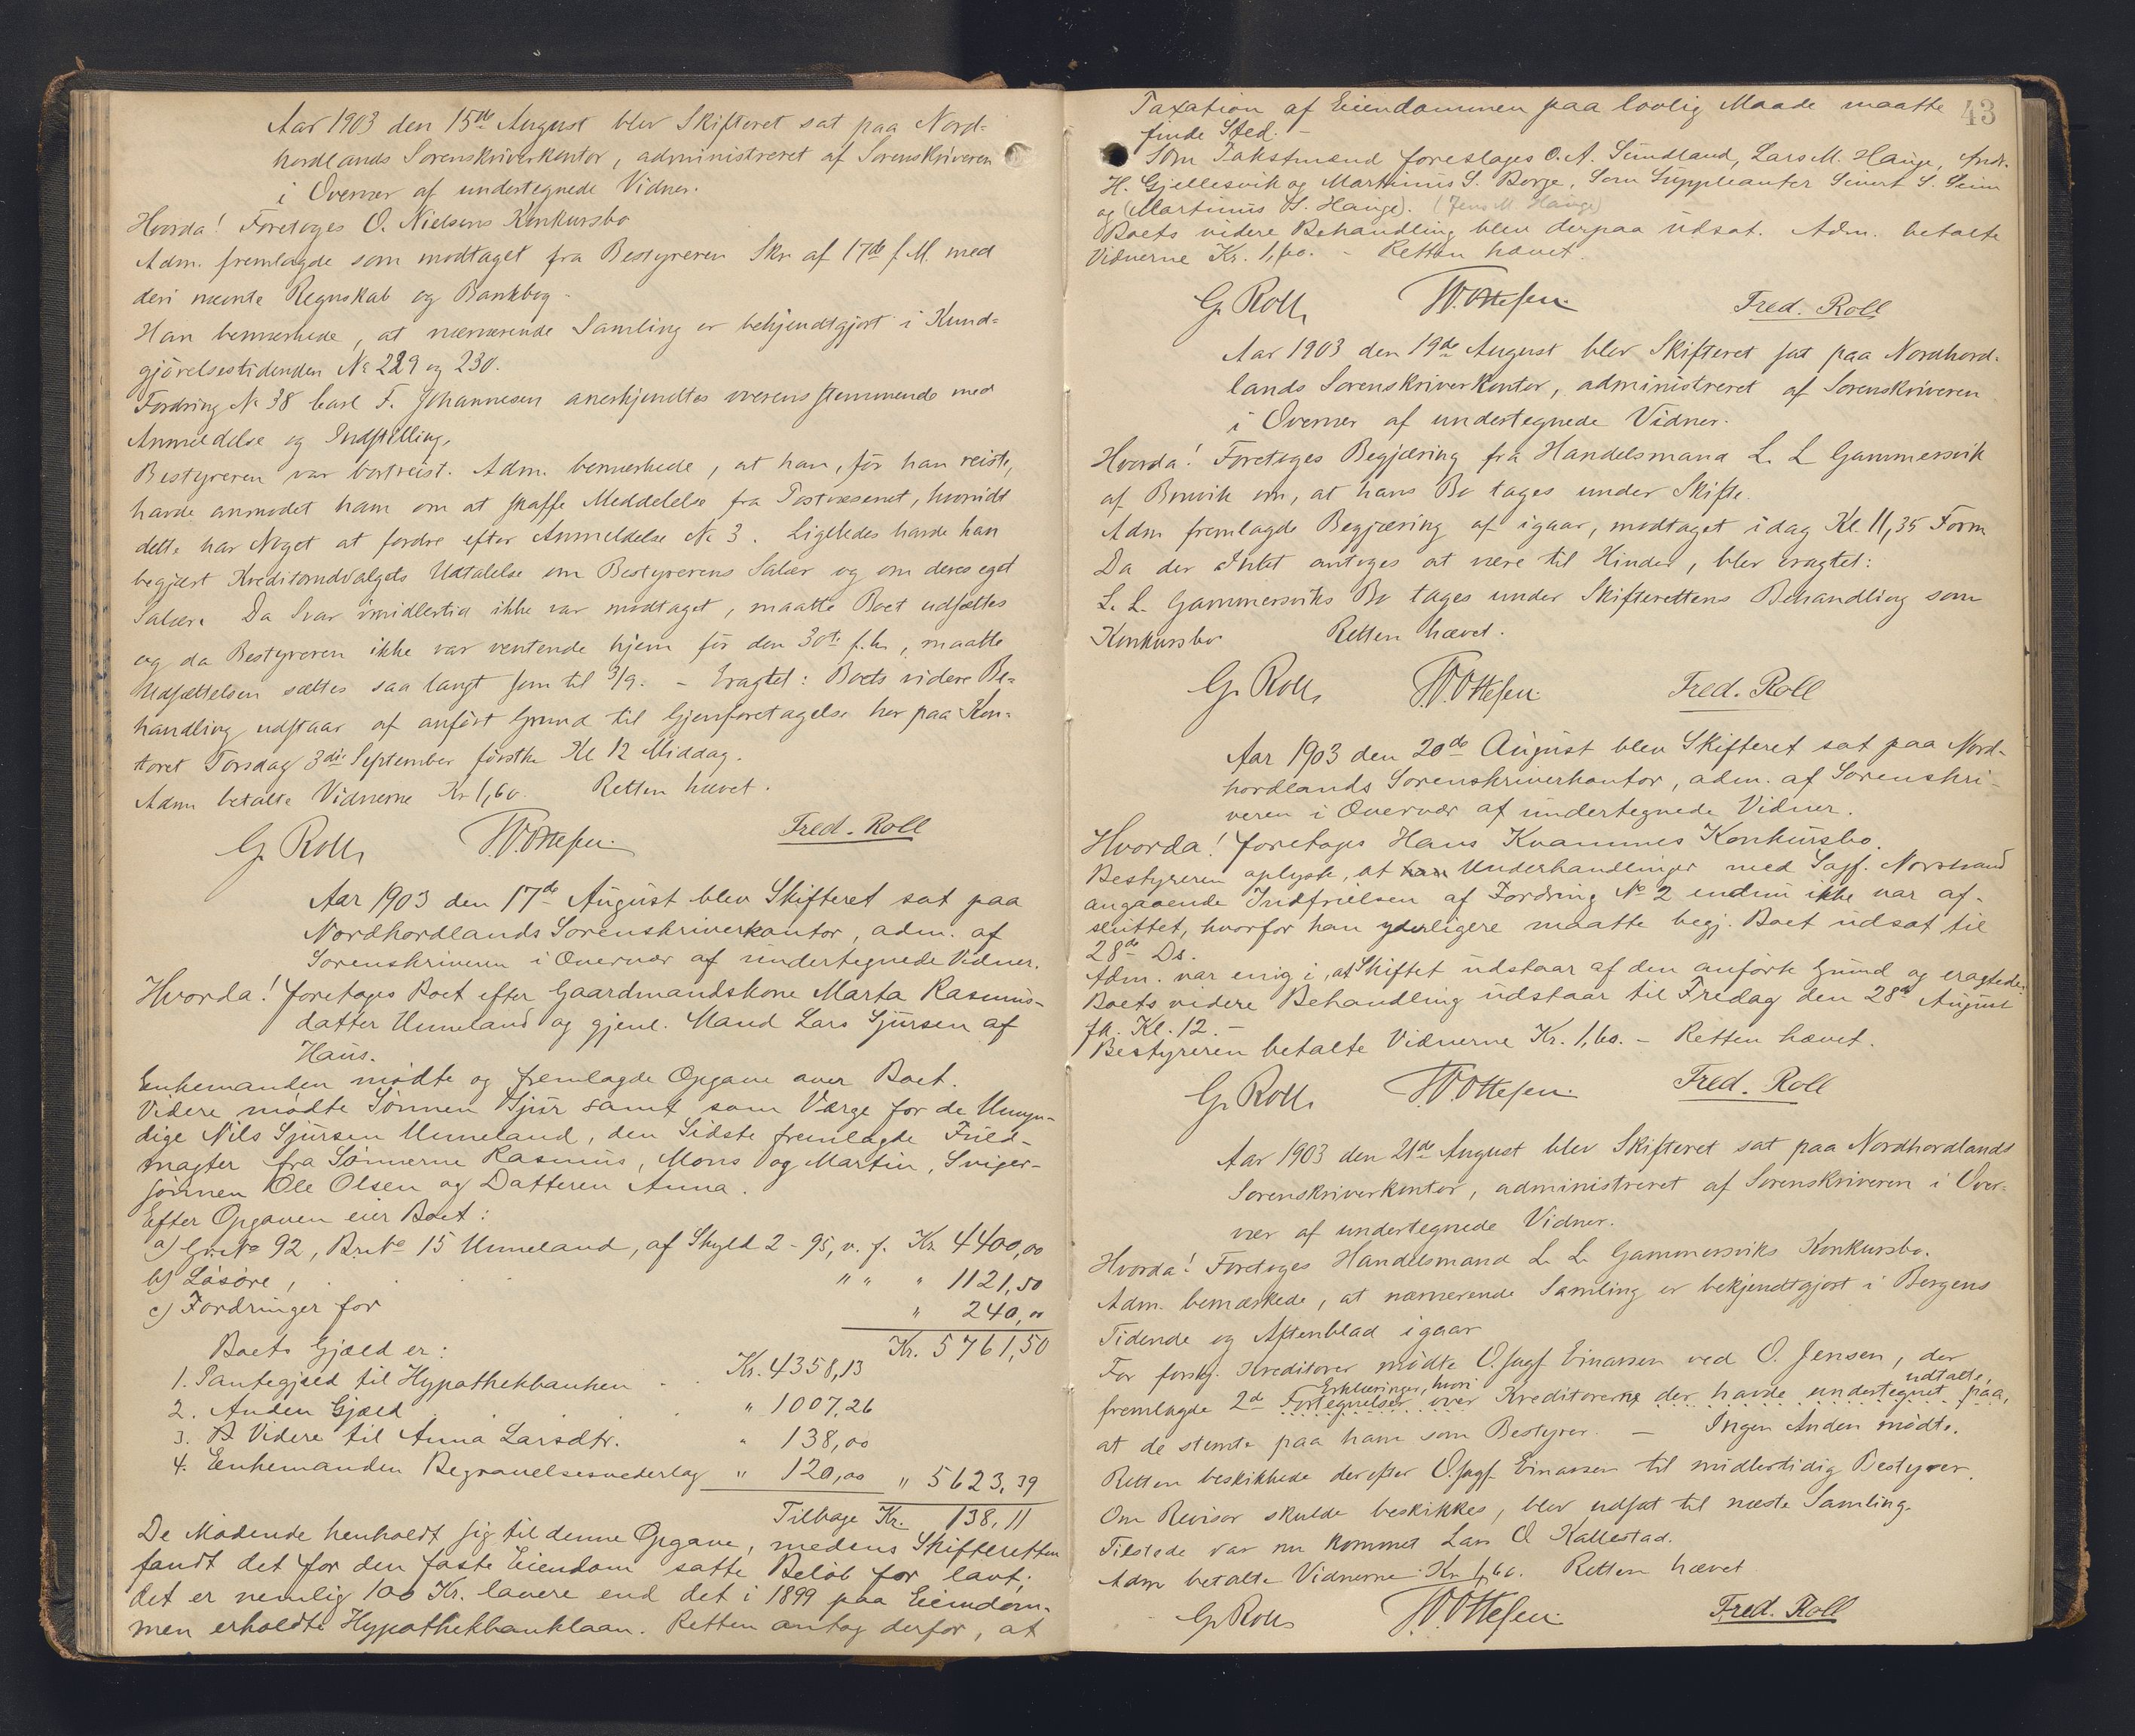 Aar 1903 den 15de August blev Skifteret sat paa Nord-
hordlands Sorenskriverkontor, administreret af Sorenskriveren
i Overvær af undertegnede Vidner.
Hvorda! Foretoges O. Nielsens Konkursbo
Adm. fremlagde som modtaget fra Bestyreren Skr af 17de f.M. med
deri nævnte Regnskab og Bankbog.
Han bemærkede, at nærværende Samling er bekjendtgjort i Kund-
gjørelsestidenden No 229 og 230.
Fordring No 38 Carl F. Johannesen anerkjendtes overensstemmende med
Anmeldelse og Indstilling.
Bestyreren var bortreist. Adm. bemærkede, at han, før han reiste,
havde anmodet ham om at skaffe Meddelelse fra Postvæsenet, hvorvidt
dette har Noget at fordre efter Anmeldelse No 3. Ligeledes havde han
begjært Kreditorudvalgets Udtalelse om Bestyrerens Salær og om deres eget
Salær. Da Svar imidlertid ikke var modtaget, maatte Boet udsættes
og da Bestyreren ikke var ventende hjem før den 30te f.k., maatte
Udsættelsen sættes saa langt som til 3/9. - Eragtet: Boets videre Be-
handling udstaar af anført Grund til Gjenforetagelse her paa Kon-
toret Torsdag 3die September førstk. Kl 12 Middag.
Adm betalte Vidnerne Kr 1,60. Retten hævet.
G. Roll, W. Ottesen. Fred. Roll
Aar 1903 den 17de August blev Skifteret sat paa
Nordhordlands Sorenskriverkontor, adm. af
Sorenskriveren i Overvær af undertegnede Vidner.
Hvorda! foretages Boet efter Gaardmandskone Marta Rasmus-
datter Unneland og gjenl. Mand Lars Sjursen af
Haus.
Enkemanden mødte og fremlagde Opgave over Boet.
Videre mødte Sønnen Sjur samt som Værge for de Umyn-
dige Nils Sjursen Unneland, den Sidste fremlagde Fuld-
magter fra Sønnerne Rasmus, Mons og Martin, Sviger-
sønnen Ole Olsen og Datteren Anna.
Efter Opgaven eier Boet:
a) G.No 92, Br.No 15 Unneland, af Skyld 2-95, v. f. Kr 4400,00
b) Løsøre, . . . " " " 1121,50
c) Fordringer for " 240,00
Kr. 5761,50
Boets Gjæld er:
1. Pantegjæld til Hypothekbanken . Kr. 4358,13
2. Anden Gjæld . . . . " 1007,26
3. Videre til Anna Larsdtr. " 138,00
4. Enkemanden Begravelsesvederlag " 120,00 " 5623,39
Tilbage Kr. 138,11
De Mødende henholdt sig til denne Opgave, medens Skifteretten
fandt det for den faste Eiendom satte Beløb for lavt;
det er nemlig 100 Kr. lavere end det i 1899 paa Eiendom-
men erholdte Hypothekbanklaan. Retten antog derfor, at
43
Taxation af Eiendommen paa lovlig Maade maatte
finde Sted. -
Som Takstmænd foreslages O. A. Sundland, Lars M. Hauge, Andr.
H. Gjellesvik og Martinus S. Borge, Som Suppleanter Sivert S. Seim
og (Martinus H. Hauge). (Jens M. Hauge)
Boets videre Behandling blev derpaa udsat. Adm. betalte
Vidnerne Kr. 1,60. - Retten hævet.
G. Roll, W. Ottesen. Fred. Roll
Aar 1903 den 19de August blev Skifteret sat paa Nordhord-
lands Sorenskriverkontor, administreret af Sorenskriveren
i Overvær af undertegnede Vidner.
Hvorda! Foretoges Begjæring fra Handelsmand L. L Gammersvik
af Bonvik om, at hans Bo tages under Skifte.
Adm fremlagde Begjæring af igaar, modtaget idag Kl. 11,35 Form
Da der Intet antoges at være til Hinder, blev eragtet:
L. L. Gammersviks Bo tages under Skifterettens Behandling som
Konkursbo Retten hævet.
G. Roll, W. Ottesen. Fred. Roll
Aar 1903 den 20de August blev Skifteret sat paa Nord-
hordlands Sorenskriverkontor, adm. af Sorenskri-
veren i Overvær af undertegnede Vidner.
Hvorda! foretages Hans Kvamnes Konkursbo.
Bestyreren oplyste, at han Underhandlinger med Sagf. Norstrand
angaaende Indfrielsen af Fordring No 2 endnu ikke var af-
sluttet, hvorfor han yderligere maatte begj. Boet udsat til
28de Ds.
Adm. var enig i, at Skiftet udstaar af den anførte Grund og eragtede:
Boets videre Behandling udstaar til Fredag den 28de August
fk. Kl. 12. -
Bestyreren betalte Vidnerne Kr. 1,60. - Retten hævet.
G. Roll, W. Ottesen. Fred. Roll
Aar 1903 den 21de August blev Skifteret sat paa Nordhordlands
Sorenskriverkontor, administreret af Sorenskriveren i Over-
vær af undertegnede Vidner.
Hvorda! Foretoges Handelsmand L. L. Gammersviks Konkursbo.
Adm. bemærkede, at nærværende Samling er bekjendtgjort i Bergens
Tidende og Aftenblad igaar
For forskj. Kreditorer mødte O.sagf Einarsen ved O. Jensen, der
Erklæringer, hvori udtalte,
fremlagde 2de Fortegnelser over Kreditorerne der havde undertegnet paa,
at de stemte paa ham som Bestyrer. - Ingen Anden mødte.
Retten beskikkede derefter O.sagf. Einarsen til midlertidig Bestyrer.
Om Revisor skulde beskikkes, blev udsat til næste Samling.
Tilstede var nu kommet Lars O Kallestad.
Adm betalte Vidnerne Kr 1,60. Retten hævet
G. Roll, W. Ottesen. Fred. Roll